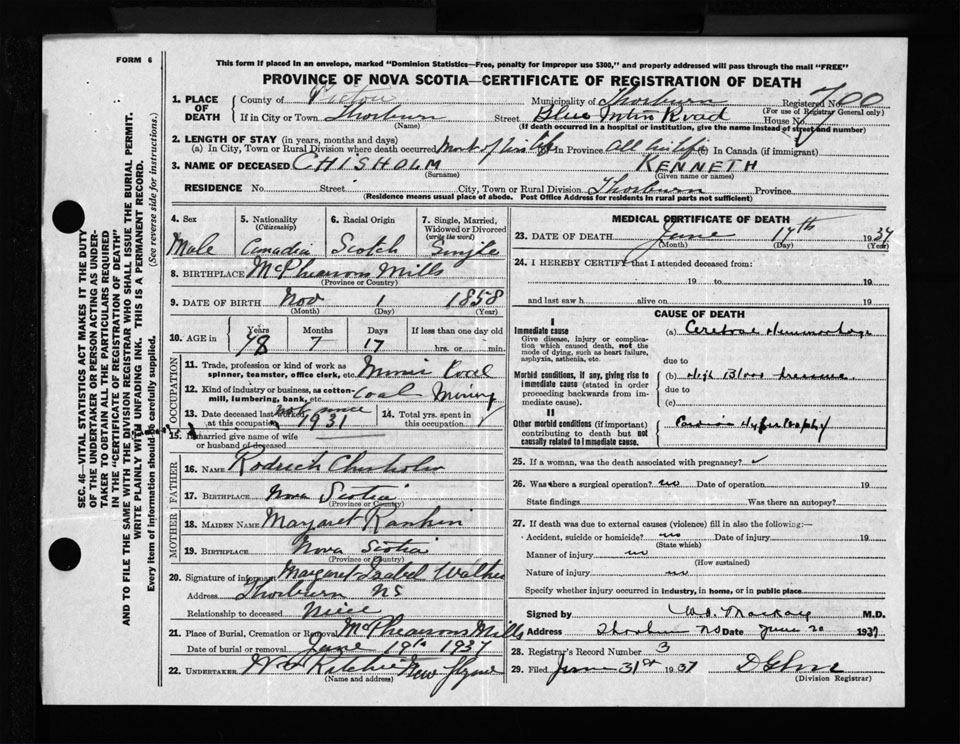 FORM 6
This form if placed in an envelope, marked "Dominion Statistics—Free, penalty for improper use $300," and properly addressed will pass through the mail "FREE"
PROVINCE OF NOVA SCOTIA—CERTIFICATE OF REGISTRATION OF DEATH
1. PLACE OF DEATH
County of Pictou Municipality of Thorburn Registered No. 700
(For use of Registrar General only)
If in City or Town Thorburn Street House No.
(Name) (If death occurred in a hospital or institution, give the name instead of street and number)
2. LENGTH OF STAY (in years, months and days)
(a) In City, Town or Rural Division where death occurred Most of life (b) In Province All his life (c) In Canada (if immigrant)
3. NAME OF DECEASED CHISHOLM KENNETH
(Surname) (Given name or names)
RESIDENCE No. Street City, Town or Rural Division Thorburn Province
(Residence means usual place of abode. Post Office Address for residents in rural parts not sufficient)
4. Sex
Male
5. Nationality
(Citizenship)
Canadia
6. Racial Origin
Scotch
7. Single, Married, Widowed or Divorced
(write the word)
Single
8. BIRTHPLACE McPhearsons Mills
(Province or Country)
9. DATE OF BIRTH Nov 1 1858
(Month) (Day) (Year)
10. AGE in Years Months Days If less than one day old
78 7 17 hrs. or min.
OCCUPATION
11. Trade, profession or kind of work as spinner, teamster, office clerk, etc.
12. Kind of industry or business, as cotton-mill, lumbering, bank, etc. Coal Mining
13. Date deceased last worked at this occupation since 1931
14. Total yrs. spent in this occupation
15. If married give name of wife or husband of deceased
FATHER
16. NAME Roderick Chisholm
17. BIRTHPLACE Nova Scotia
(Province or Country)
MOTHER
18. MAIDEN NAME Margaret Rankin
19. BIRTHPLACE Nova Scotia
(Province or Country)
20. Signature of informant Margaret Isabel Walker
Address Thorburn NS
Relationship to deceased Niece
21. Place of Burial, Cremation or Removal McPhearsons Mills
Date of burial or removal June 19th 1937
22. UNDERTAKER Ritchie New Glasgow
(Name and address)
MEDICAL CERTIFICATE OF DEATH
23. DATE OF DEATH June 17th 1937
(Month) (Day) (Year)
24. I HEREBY CERTIFY that I attended deceased from:
19 to 19
and last saw h alive on 19
CAUSE OF DEATH
I
Immediate cause (a) Cerebral Hemmorhage
Give disease, injury or complication which caused death, not the mode of dying, such as heart failure, asphyxia, asthenia, etc.
due to
Morbid conditions, if any, giving rise to immediate cause (stated in order proceeding backwards from immediate cause).
(b) High Blood Pressure
due to
(c)
II
Other morbid conditions (if important) contributing to death but not causally related to immediate cause.
Cardiac Hypertrophy
25. If a woman, was the death associated with pregnancy?
26. Was there a surgical operation? no Date of operation 19
State findings Was there an autopsy?
27. If death was due to external causes (violence) fill in also the following:—
Accident, suicide or homicide? no Date of injury 19
(State which)
Manner of injury no
(How sustained)
Nature of injury no
Specify whether injury occurred in industry, in home, or in public place
Signed by MacKay M.D.
Address Thorburn NS Date June 20 1937
28. Registrar's Record Number 3
29. Filed June 31st 1937
(Division Registrar)
SEC. 46—VITAL STATISTICS ACT MAKES IT THE DUTY
OF THE UNDERTAKER OR PERSON ACTING AS UNDER-
TAKER TO OBTAIN ALL THE PARTICULARS REQUIRED
IN THE "CERTIFICATE OF REGISTRATION OF DEATH"
AND TO FILE THE SAME WITH THE DIVISION REGISTRAR WHO SHALL ISSUE THE BURIAL PERMIT.
WRITE PLAINLY WITH UNFADING INK. THIS IS A PERMANENT RECORD.
Every item of information should be carefully supplied. (See reverse side for instructions.)